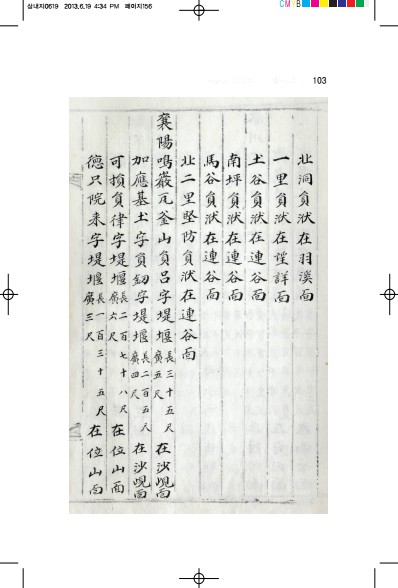 삼내지0619 2013.6.19 4:34 PM 페이지156
CMYB
103
北洞負洑在羽溪面
一里負洑在望詳面
土谷負洑在連谷面
南坪負洑在連谷面
馬谷負洑在連谷面
北二里堅防負洑在連谷面
襄陽鳴巖瓦釜山負呂字堤堰長三十五尺廣五尺在沙峴面
加應基土字負釰字堤堰長二百五尺廣四尺在沙峴面
可損負律字堤堰長二百七十八尺廣六尺在位山面
德只院来字堤堰長一百三十五尺廣三尺在位山面